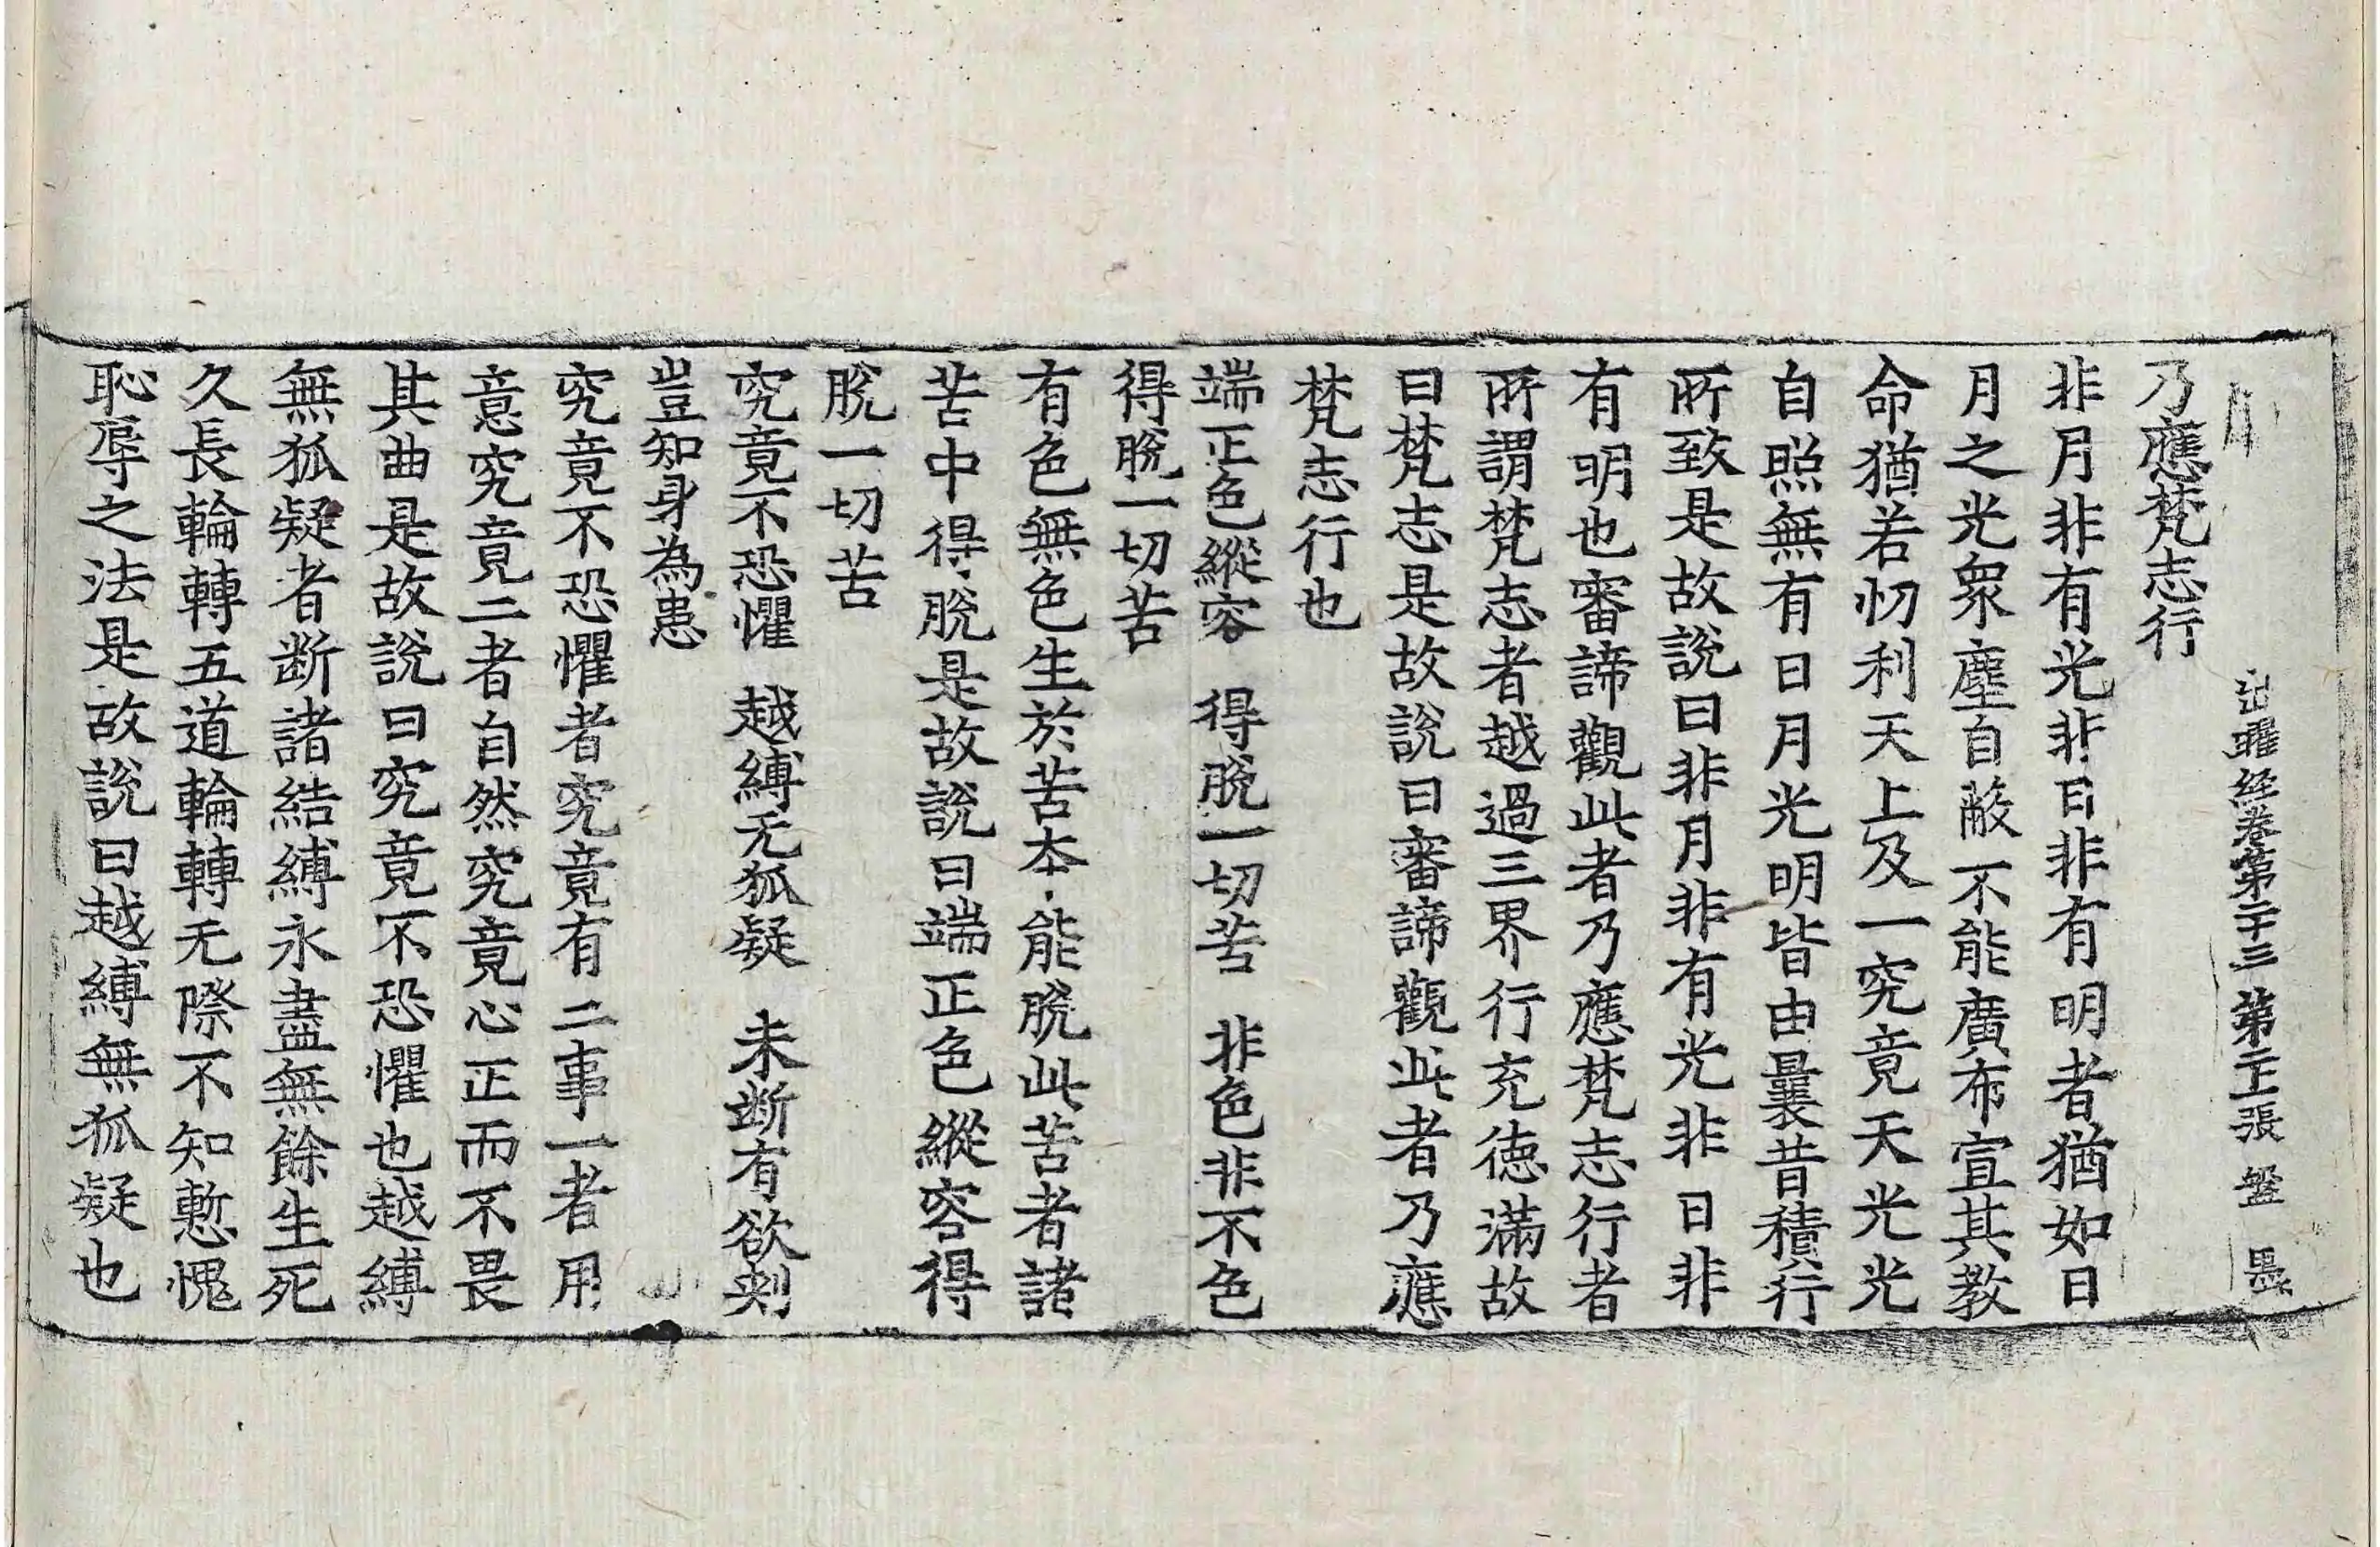 出曜經卷第二十三 第二十張 盤 墨
乃應梵志行
非月非有光非日非有明者猶如日
月之光衆塵自蔽不能廣布宣其教
命猶若忉利天上及一究竟天光光
自照無有日月光明皆由曩昔積行
所致是故說曰非月非有光非日非
有明也審諦觀此者乃應梵志行者
所謂梵志者越過三界行充徳滿故
曰梵志是故說曰審諦觀此者乃應
梵志行也
端正色縱容 得脫一切苦 非色非不色
得脫一切苦
有色無色生於苦本能脫此苦者諸
苦中得脫是故說曰端正色縱容得
脫一切苦
究竟不恐懼 越縛无狐疑 未断有欲刺
豈知身為患
究竟不恐懼者究竟有二事一者用
意究竟二者自然究竟心正而不畏
其曲是故說曰究竟不恐懼也越縛
無狐疑者断諸結縛永盡無餘生死
久長輪轉五道輪轉无際不知慙愧
恥辱之法是故說曰越縛無狐疑也